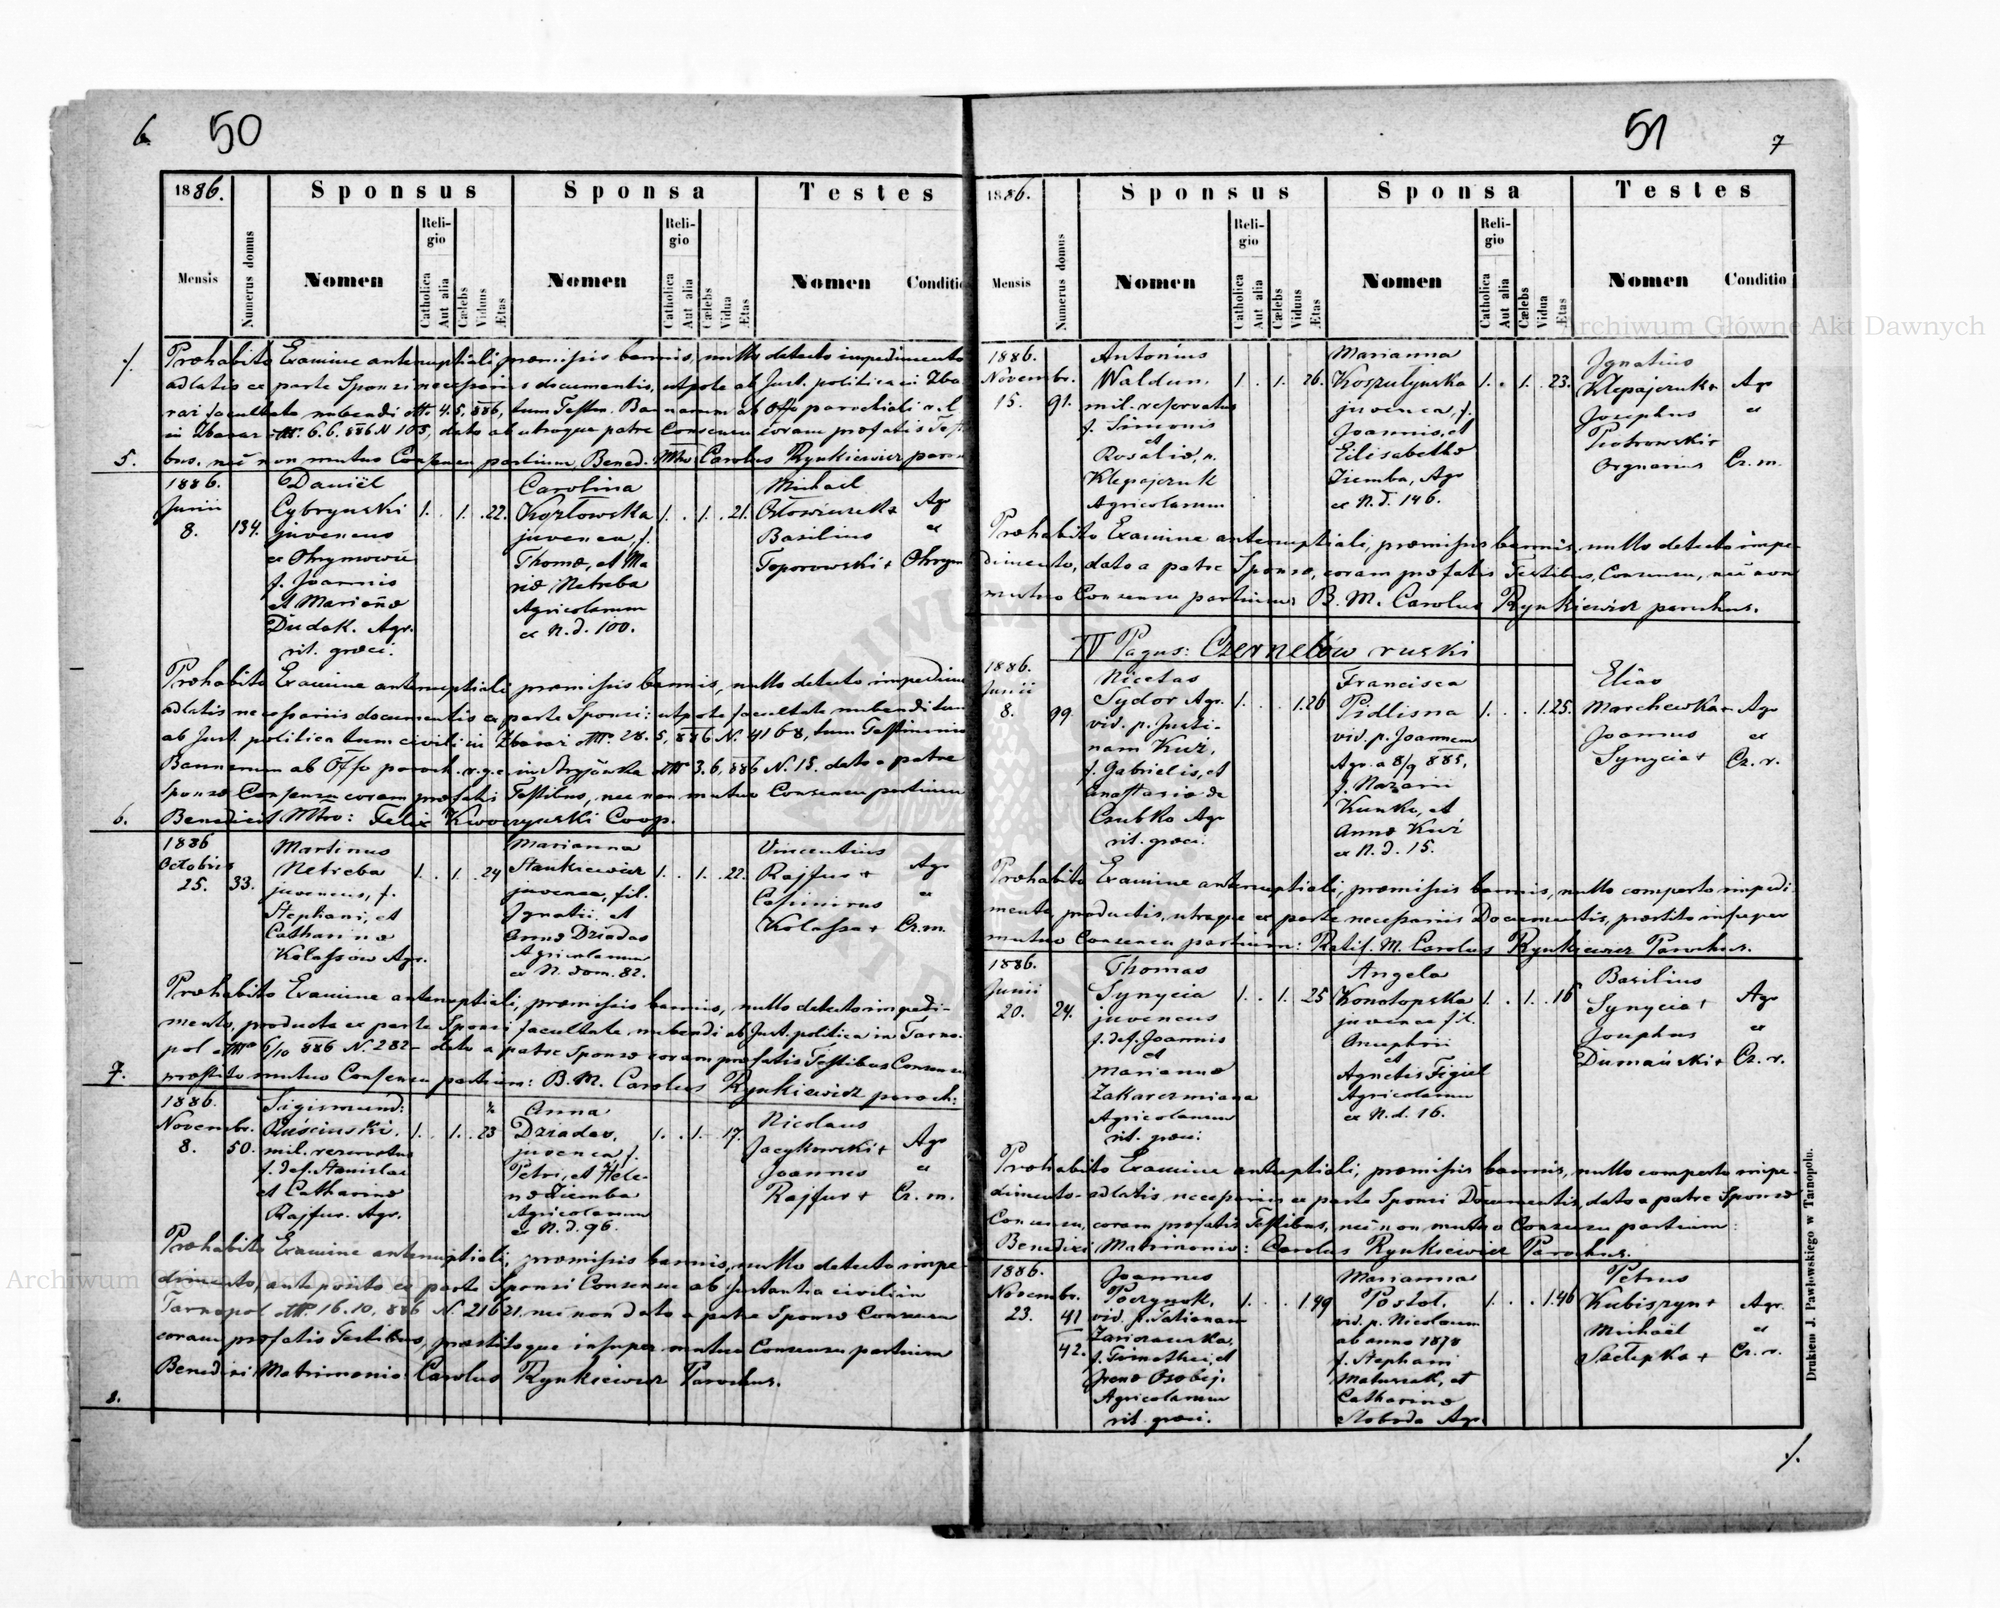 6. 50
1886. Sponsus Sponsa Testes
Mensis Numerus domus Nomen Religio Catholica Aut alia Cælebs Viduus Ætas Nomen Religio Catholica Aut alia Cælebs Vidua Ætas Nomen Conditio
Præhabito Examine antenuptiali, præmissis bannis, nullo detecto impedimento
adlatis ex parte Sponsi necessariis documentis, utpote ab Just. politica in Zba
raz facultate nubendi dtto 4.5, 886, tum Testm. Bannorum ab Offo parochiali r. l.
in Zbaraz dtto. 6. 6. 886 N 105, dato ab utroque patre Consensu coram præfatis Testi
5. bus. nec non mutuo Consensu partium, Bened. Mtro: Carolus Rynkiewicz paro
1886.
Junii
8.
134.
Daniël
Cybrynski
juvencus
ex Ohrymowic
f. Joannis
et Mariañæ
Dudak. Agr.
rit. græci.
1. . 1. . 22.
Carolina
Kozłowska
juvenca, f.
Thomæ, et Ma
riæ Netreba
Agricolarum
ex N. d. 100.
1. . 1. . 21.
Michael
Basilius
Toporowski +
Agr
et
Ohrym
Præhabito Examine antenuptiali, præmissis bannis, nullo detecto impedime
adlatis necessariis documentis ex parte Sponsi: utpote facultate nubendi tum
ab Just. politica tum civili in Zbaraz dtto. 28. 5, 886 N. 4168, tum Testimonio
Bannorum ab Offo paroch. r. g. c. in Stryjówka dtto 3. 6, 886 N. 15. dato a patre
Sponsæ Consensu coram præfatis Testibus, nec non mutuo Consensu partium
6. Benedixit Mtro: Felix Kwoczynski Coop.
1886
Octobris
25.
33.
Martinus
Netreba
juvencus, f.
Stephani, et
Catharinæ
Kolassow Agr.
1. . 1. . 24
Marianna
Stankiewicz
juvenca, fil.
Ignatii. et
Annæ Dziadas
Agricolarum
ex N. dom. 82.
1. . 1. . 22.
Vincentius
Rajfur +
Casimirus
Kolassa +
Agr
et
Cz. m.
Præhabito Examine antenuptiali, præmissis bannis, nullo detecto impedi-
mento, producta ex parte Sponsi facultate nubendi ab Just. politica in Tarno-
pol dtto 6/10 886 N. 282 - dato a patre Sponsæ coram præfatis Testibus Consensu
7. præstito mutuo Consensu partium: B. M. Carolus Rynkiewicz paroch:
1886.
Novembr.
8.
50.
Sigismund:
mil. reservatus
f. def. Stanislai
et Catharinæ
Rajfur. Agr.
1. . 1. . 23
Anna
Dziadas,
juvenca f.
Petri, et Hele-
næ Ziemba
Agricolarum
ex N. d. 96.
1. . 1. 17.
Nicolaus
Jacykowski +
Joannes
Rajfur +
Agr
et
Cz. m.
Præhabito Examine antenuptiali, præmissis bannis, nullo detecto impe-
dimento, anteposito ex parte Sponsi Consensu ab Justantia civili in
Tarnopol dtto. 16. 10, 886 N. 21621, nec non dato a patre Sponsæ Consensu
coram præfatis Testibus, præstitoque insuper mutuo Consensu partium
Benedixi Matrimonio: Carolus Rynkiewicz Parochus.
8.
51 7
1886. Sponsus Sponsa Testes
Mensis Numerus domus Nomen Religio Catholica Aut alia Cælebs Viduus Ætas Nomen Religio Catholica Aut alia Cælebs Vidua Ætas Nomen Conditio
1886.
Novembr.
15.
91.
Antonius
Waldun.
mil. reservatus
f. Simonis
et
Rosaliæ, n.
Klepajczuk
Agricolarum
1 . 1. 26.
Marianna
Koszulynska
juvenca, f.
Joannis, et
Elisabethæ
Ziemba, Agr
ex N. d. 146.
1. . 1. 23.
Ignatius
Klepajczuk +
Josephus
Piotrowski +
Orgnarius
Agr
et
Cz. m.
Præhabito Examine antenuptiali, præmissis bannis, nullo detecto impe-
dimento, dato a patre Sponsæ, coram præfatis Testibus, Consensu, nec non
mutuo Consensu partium: B. M. Carolus Rynkiewicz parochus.
IV Pagus: Czernelów ruski
1886.
Junii
8.
99.
Nicetas
Sydor Agr.
vid. p. Justi-
nam Kuź,
f. Gabrielis, et
Anastasiæ de
Czubko Agr
rit. græci.
1. . . 1. 26
Francisca
Pidlisna
vid. p. Joannem
Agr. a 8/9 885,
f. Nazarii
Kunko, et
Annæ Kuź
ex N. d. 15.
1. . . 1. 25.
Elias
Marchewka +
Joannes
Synycia +
Agr
et
Cz. r.
Præhabito Examine antenuptiali, præmissis bannis, nullo comperto impedi-
mento, productis, utraque ex parte necessariis Documentis, præstito insuper
mutuo Consensu partium: Ratif. M. Carolus Rynkiewicz Parochus.
1886.
Junii
20.
24.
Thomas
Synycia
juvencus
f. def. Joannis
et
Mariannæ
Zakarczmiana
Agricolarum
rit. græci.
1. . 1. 25
Angela
Konotopska
juvenca fil.
Onuphrii
et
Agnetis Figiel
Agricolarum
ex N. d. 16.
1. . 1. . 16
Basilius
Synycia +
Josephus
Dumański +
Agr
et
Cz. r.
Præhabito Examine antenuptiali, præmissis bannis, nullo comperto impe-
dimento - adlatis necessariis ex parte Sponsi Documentis, dato a patre Sponsæ
Consensu, coram præfatis Testibus, nec non mutuo Consensu partium:
Benedixi Matrimonio: Carolus Rynkiewicz Parochus.
1886.
Novembr.
23.
41
42.
Joannes
Poczynok,
vid. p. Tatianam
f. Timothei, et
Irenæ Osobij.
Agricolarum
rit. græci.
1. . . 1. 49
Marianna
Postoł.
vid. p. Nicolaum
ab anno 1878
f. Stephani
Matuszak, et
Catharinæ
Słoboda Agr.
1. . . 1. 46
Petrus
Kubiszyn +
Michaël
Sałepka +
Agr.
et
Cz. r.
Drukiem J. Pawłowskiego w Tarnopolu.
Archiwum Główne Akt Dawnych
Archiwum Główne Akt Dawnych